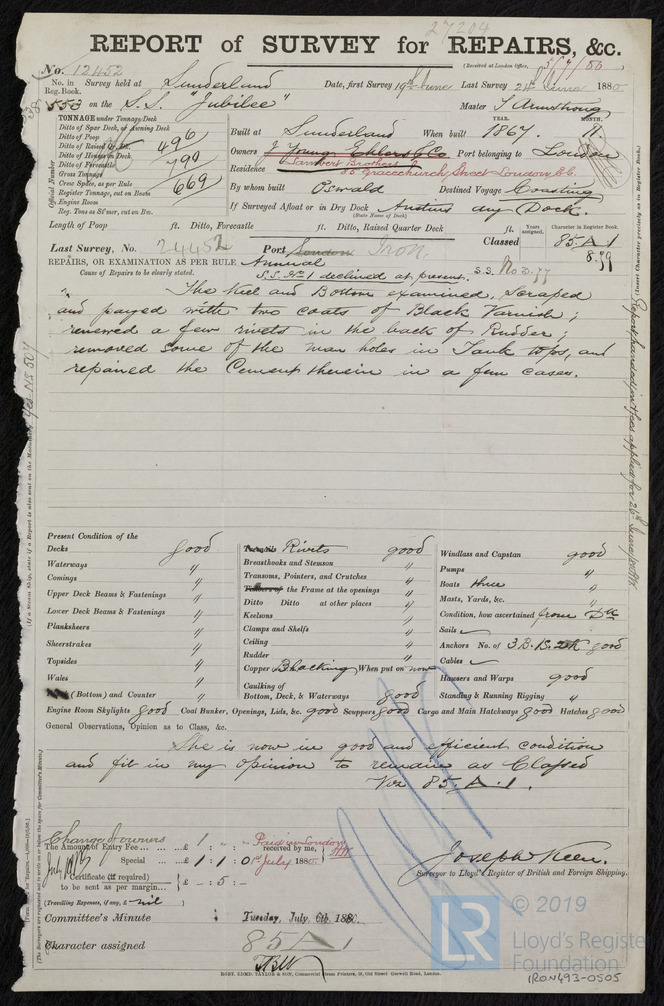 27204
REPORT of SURVEY for REPAIRS, &c.
(Received at London Office, 5/7/80)
No. 12452
No. in Reg. Book. Survey held at Sunderland Date, first Survey 19th June Last Survey 24th June 1880
553 on the S.S. "Jubilee" Master J Armstrong
TONNAGE under Tonnage Deck
Ditto of Spar Deck, or Awning Deck
Ditto of Poop 496
Ditto of Raised Qr. Dk.
Ditto of Houses on Deck 799
Ditto of Forecastle
Gross Tonnage
Crew Space, as per Rule 669
Register Tonnage, cut on Beam
Engine Room
Reg. Tons as St'mer, cut on Bm.
Official Number
YEAR. MONTH.
Built at Sunderland When built 1867. 11.
Owners J Young Ehlers & Co Port belonging to London
Lambert Brothers
Residence 85 Gracechurch Street London E.C.
By whom built Oswald Destined Voyage Coasting
If Surveyed Afloat or in Dry Dock Austins dry Dock.
(State Name of Dock)
Length of Poop ft. Ditto, Forecastle ft. Ditto, Raised Quarter Deck ft.
Years assigned. Character in Register Book.
Last Survey, No. 24452 Port London Iron. Classed 85 A 1
8.79
REPAIRS, OR EXAMINATION AS PER RULE Annual
Cause of Repairs to be clearly stated. S.S. No 1 declined at present. S.S. No 3.77
The Keel and Bottom examined, Scraped
and payed with two coats of Black Varnish;
renewed a few rivets in the back of Rudder;
removed some of the man holes in Tank tops, and
repaired the Cement therein in a few cases.
Present Condition of the
Decks good
Waterways "
Comings "
Upper Deck Beams & Fastenings "
Lower Deck Beams & Fastenings "
Planksheers "
Sheerstrakes "
Topsides "
Wales "
(Bottom) and Counter "
Rivets good
Breasthooks and Stemson "
Transoms, Pointers, and Crutches "
the Frame at the openings "
Ditto Ditto at other places "
Keelsons "
Clamps and Shelfs "
Ceiling "
Rudder "
Copper Blacking When put on now
Caulking of Bottom, Deck, & Waterways good
Windlass and Capstan good
Pumps "
Boats three "
Masts, Yards, &c. "
Condition, how ascertained from Dk
Sails ✓
Anchors No. of 3 B. 1 S. 2 K good
Cables ✓
Hawsers and Warps good
Standing & Running Rigging "
Engine Room Skylights good Coal Bunker, Openings, Lids, &c. good Scuppers good Cargo and Main Hatchways good Hatches good
General Observations, Opinion as to Class, &c.
She is now in good and efficient condition
and fit in my opinion to remain as Classed
Viz 85. A. 1.
Change of owners
The Amount of Entry Fee ... ... ... £ 1 : - : - Paid in London received by me,
Special ... ... £ 1 : 1 : 0 1st July 1880.
Certificate (if required) to be sent as per margin... £ - : 5 : -
(Travelling Expenses, if any, £ nil )
Joseph Keen.
Surveyor to Lloyd's Register of British and Foreign Shipping.
Committee's Minute Tuesday, July 6th 1880.
Character assigned 85 A 1
ROBT. EDMD. TAYLOR & SON, Commercial Steam Printers, 19, Old Street Goswell Road, London.
LR
© 2019
Lloyd's Register
Foundation
IRON493-0505